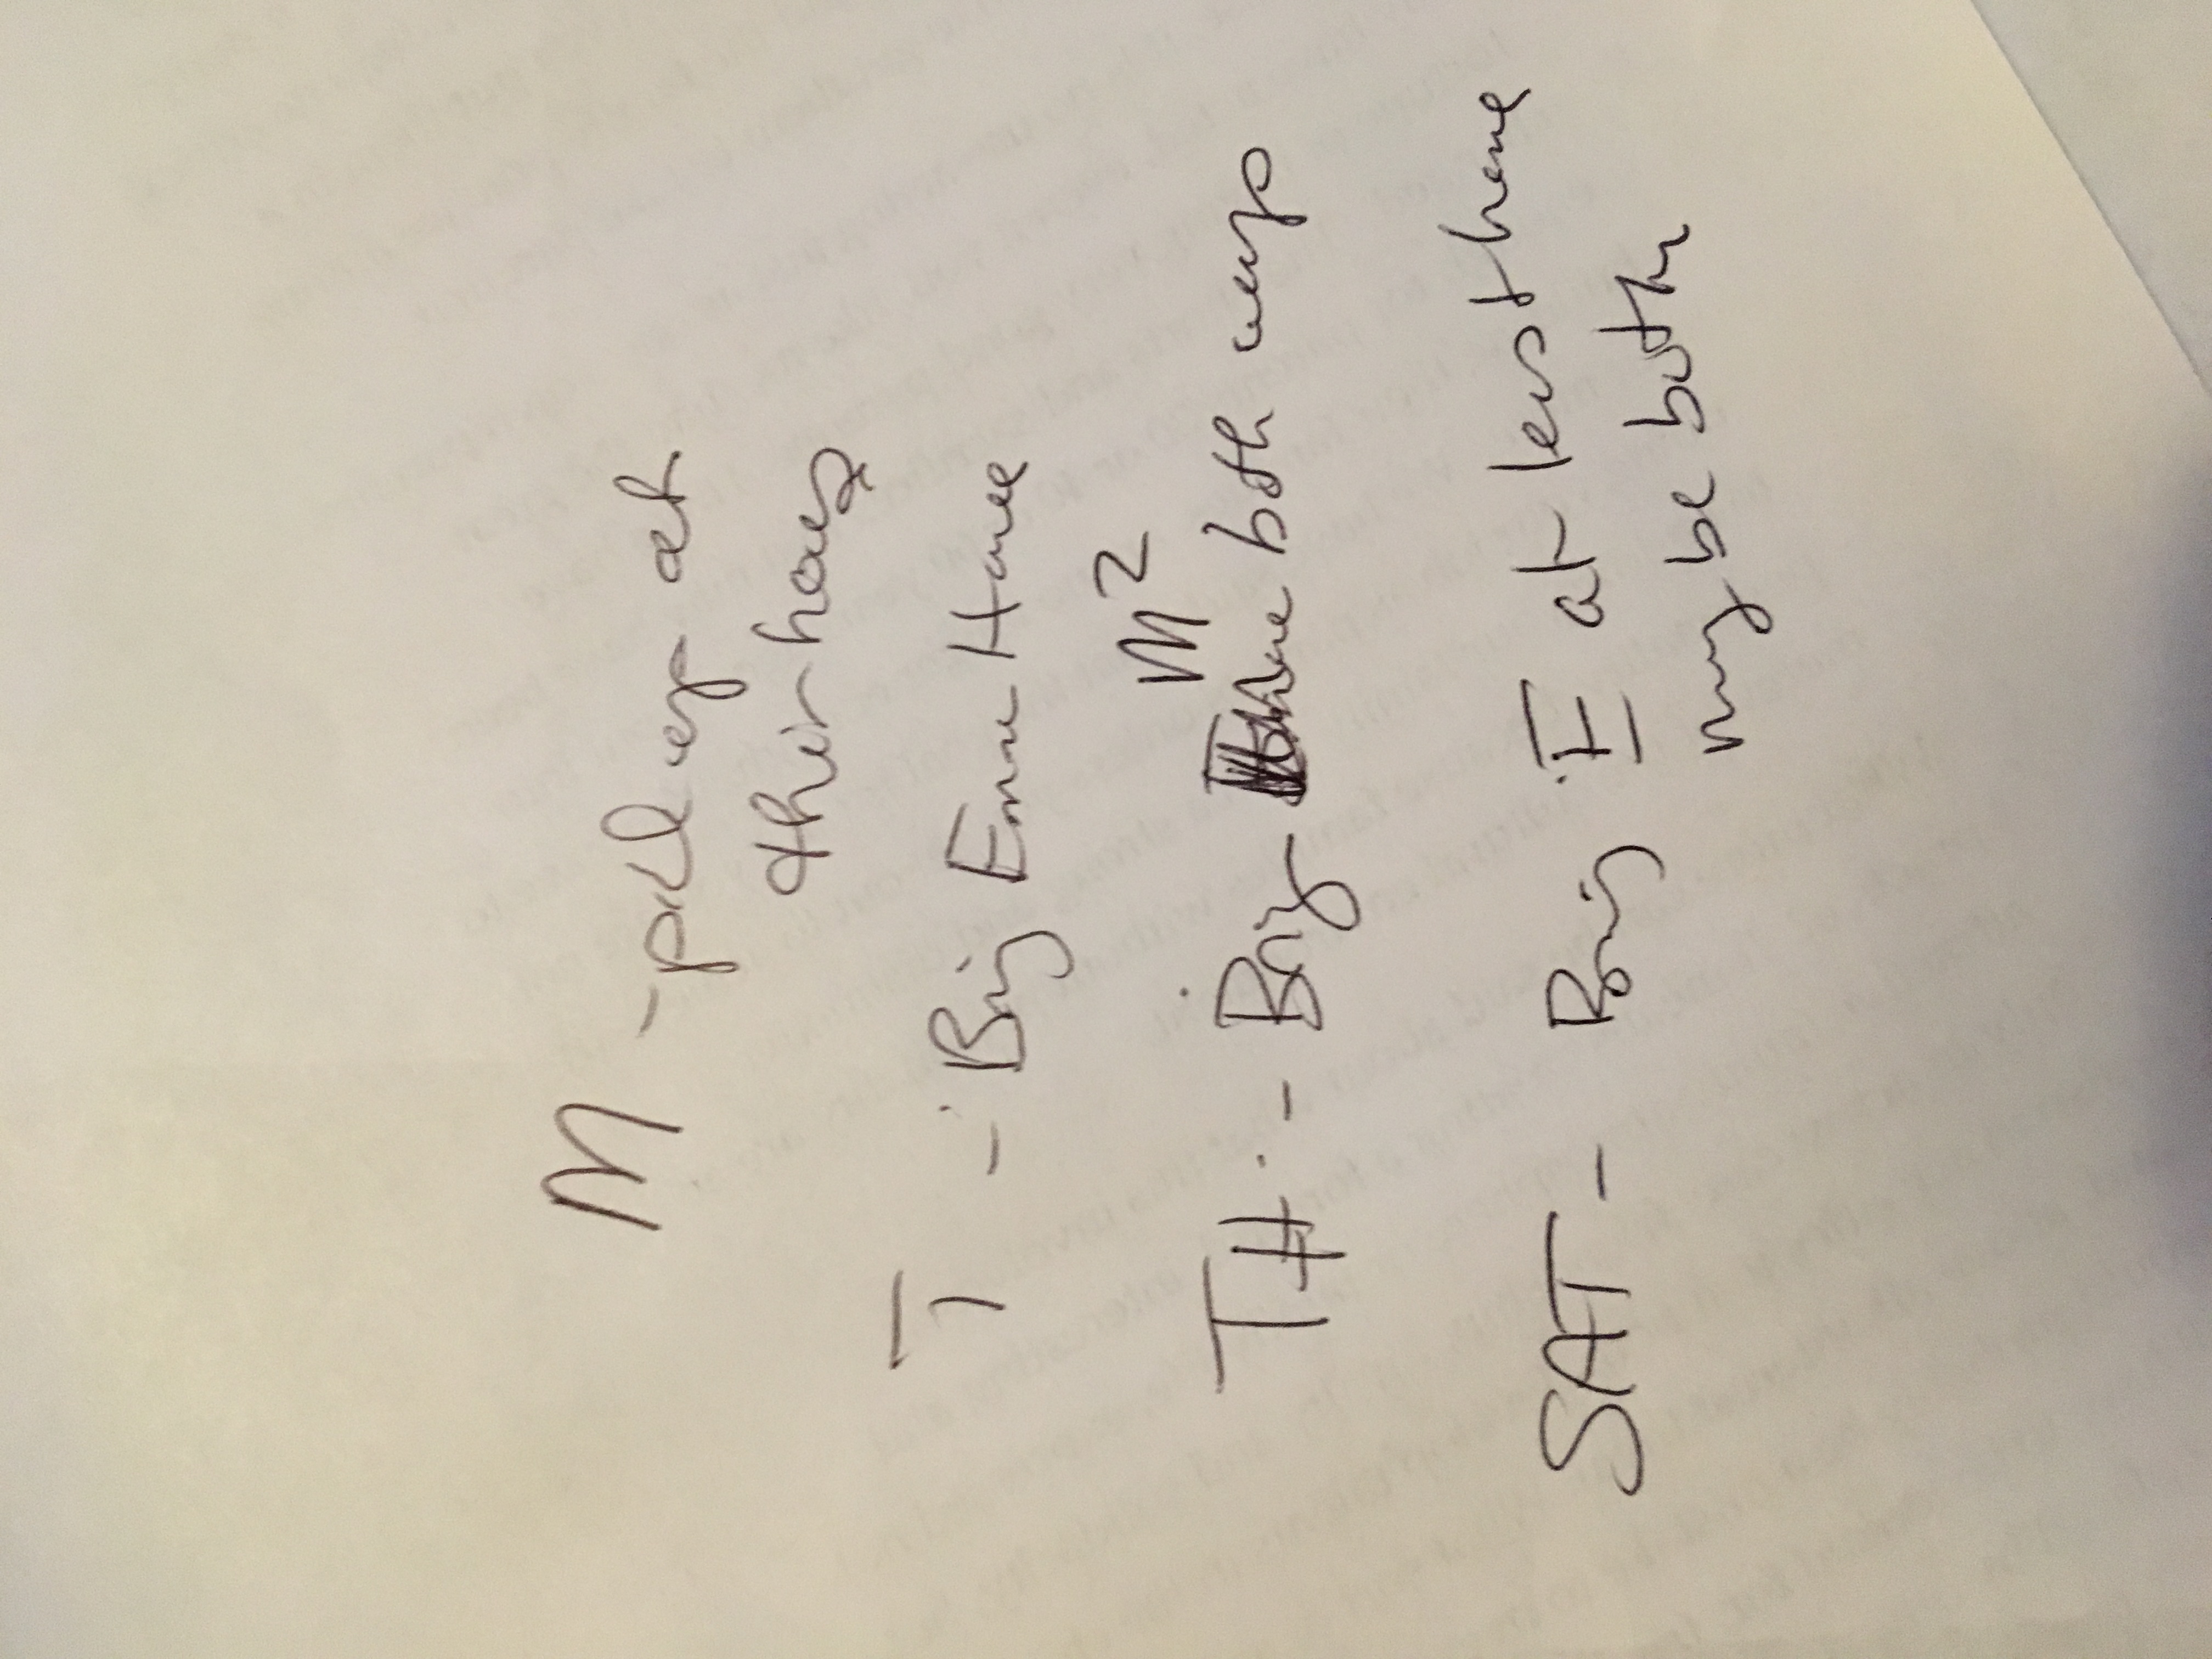 M - pick up at
their house
T - Bring Emma Home
M²
TH - Bring both ways
SAT - Bring E at least home
may be both